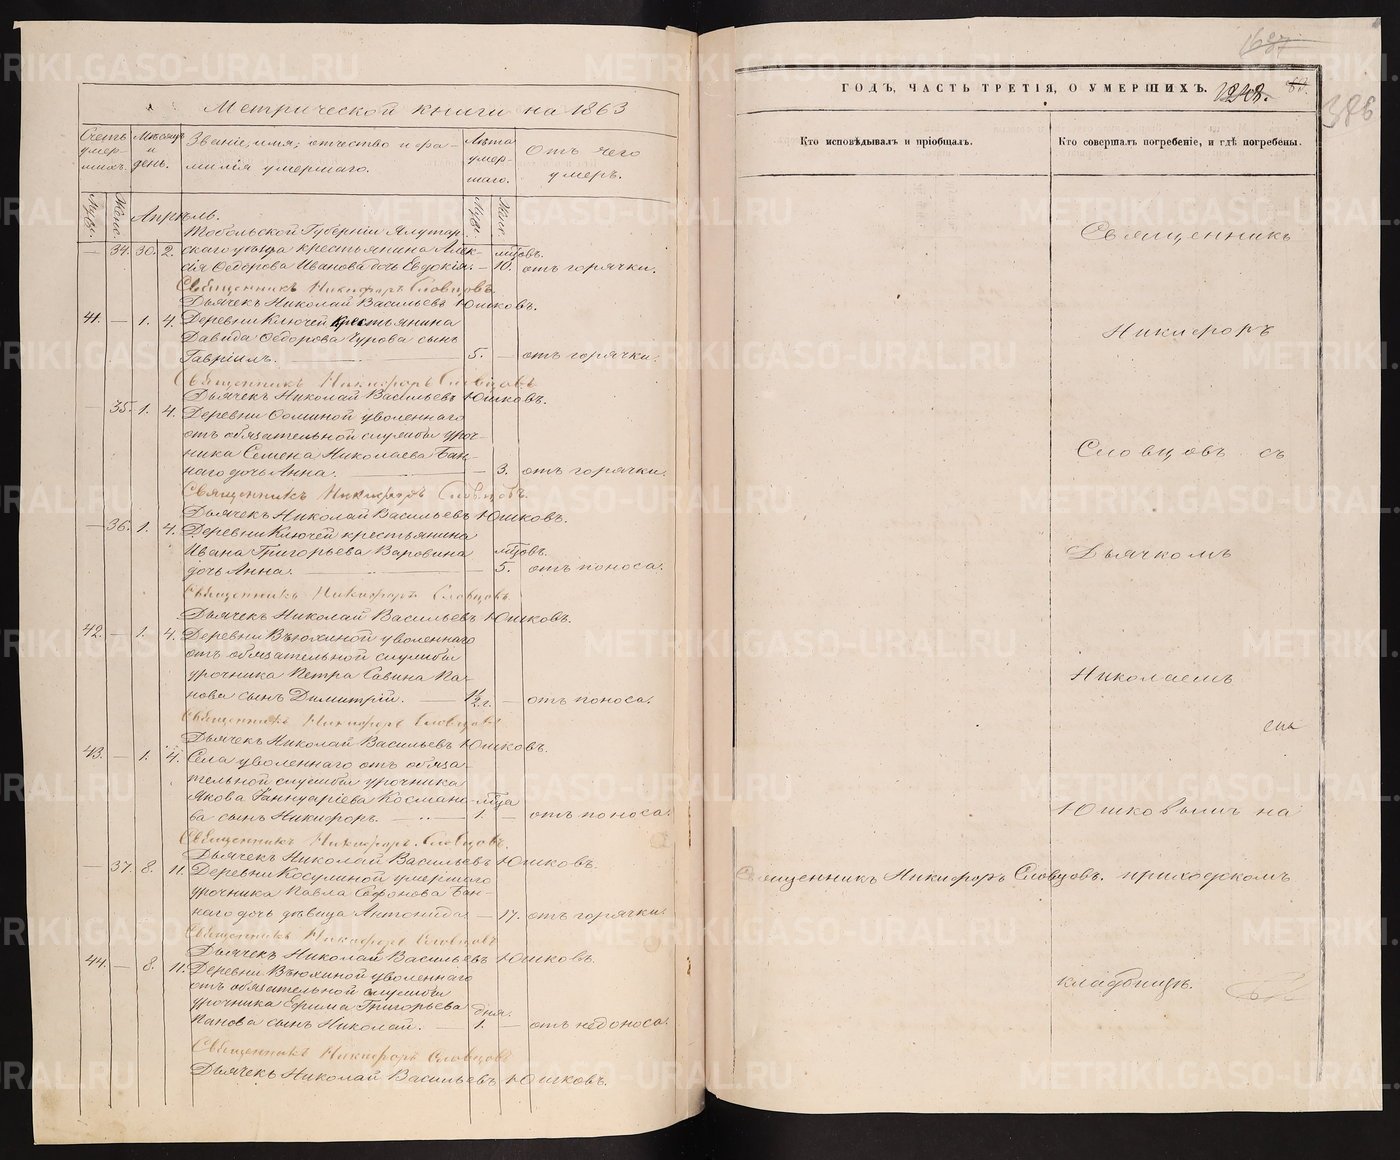 Метрической книги на 1863
Счетъ умер- шихъ.
Мѣсяцъ и день.
Званіе, имя, отчество и фа-
милія умершаго.
Лѣта умер- шаго.
Отъ чего
умеръ.
Муж. Жен.
Муж. Жен.
Апрѣль.
Тобольской Губерніи Ялутор-
— 34. 30. 2. скаго уѣзда крестьянина Алек- мѣсцовъ.
сія Ѳедорова Иванова дочь Евдокія. — 10. отъ горячки.
Священникъ Никифоръ Словцовъ.
Дьячекъ Николай Васильевъ Юшковъ.
41. — 1. 4. Деревни Ключей крестьянина
Давида Ѳедорова Чурова сынъ
Гавріилъ. 5. — отъ горячки.
Священникъ Никифоръ Словцовъ
Дьячекъ Николай Васильевъ Юшковъ.
— 35. 1. 4. Деревни Осминой уволеннаго
отъ обязательной службы уроч-
ника Семена Николаева Бан-
наго дочь Анна. — 3. отъ горячки.
Священникъ Никифоръ Словцовъ.
Дьячекъ Николай Васильевъ Юшковъ.
— 36. 1. 4. Деревни Ключей крестьянина
Ивана Григорьева Варовина мѣсцовъ.
дочь Анна. — 5. отъ поноса.
Священникъ Никифоръ Словцовъ
Дьячекъ Николай Васильевъ Юшковъ.
42. — 1. 4. Деревни Вьюхиной уволеннаго
отъ обязательной службы
урочника Петра Савина Па-
нова сынъ Димитрій. — 1½ г. — отъ поноса.
Священникъ Никифоръ Словцовъ
Дьячекъ Николай Васильевъ Юшковъ.
43. — 1. 4. Села уволеннаго отъ обяза-
тельной службы урочника
Якова Іаннуаріева Космано- мѣсца
ва сынъ Никифоръ. — 1. — отъ поноса.
Священникъ Никифоръ Словцовъ.
Дьячекъ Николай Васильевъ Юшковъ.
— 37. 8. 11. Деревни Косулиной умершаго
урочника Павла Софонова Бан-
наго дочь дѣвица Антонида. — 17. отъ горячки.
Священникъ Никифоръ Словцовъ
Дьячекъ Николай Васильевъ Юшковъ.
44. — 8. 11. Деревни Вьюхиной уволеннаго
отъ обязательной службы
урочника Ефима Григорьева дня.
Панова сынъ Николай. — 1. — отъ недоноса.
Священникъ Никифоръ Словцовъ
Дьячекъ Николай Васильевъ Юшковъ.
ГОДЪ, ЧАСТЬ ТРЕТІЯ, О УМЕРШИХЪ.
386
Кто исповѣдывалъ и пріобщалъ.
Кто совершалъ погребеніе, и гдѣ погребены.
Священникъ
Никифоръ
Словцовъ съ
Дьячкомъ
Николаемъ
Юшковымъ на
Священникъ Никифоръ Словцовъ. приходскомъ
кладбищѣ.
METRIKI.GASO-URAL.RU